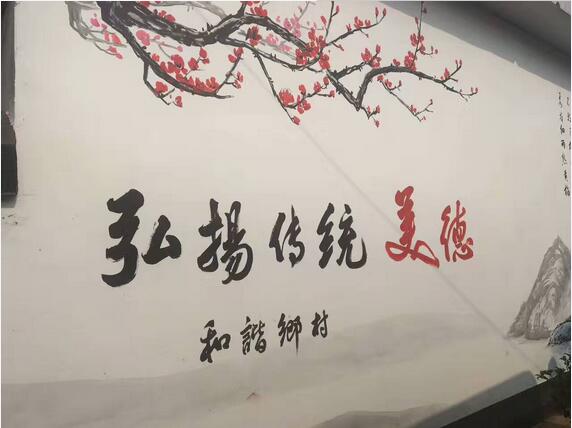 弘揚传统美德
和諧鄉村